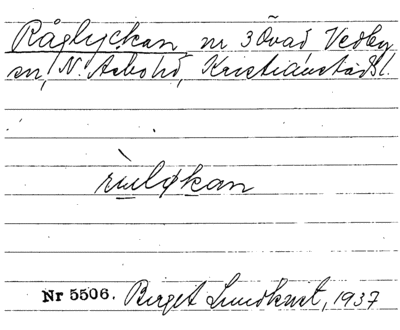 Råglyckan nr 3 Övad Vedby
sn, N. Åsbohd, Kristianstads l.
rùuløkan
Nr 5506. Birgit Lundkvist, 1937